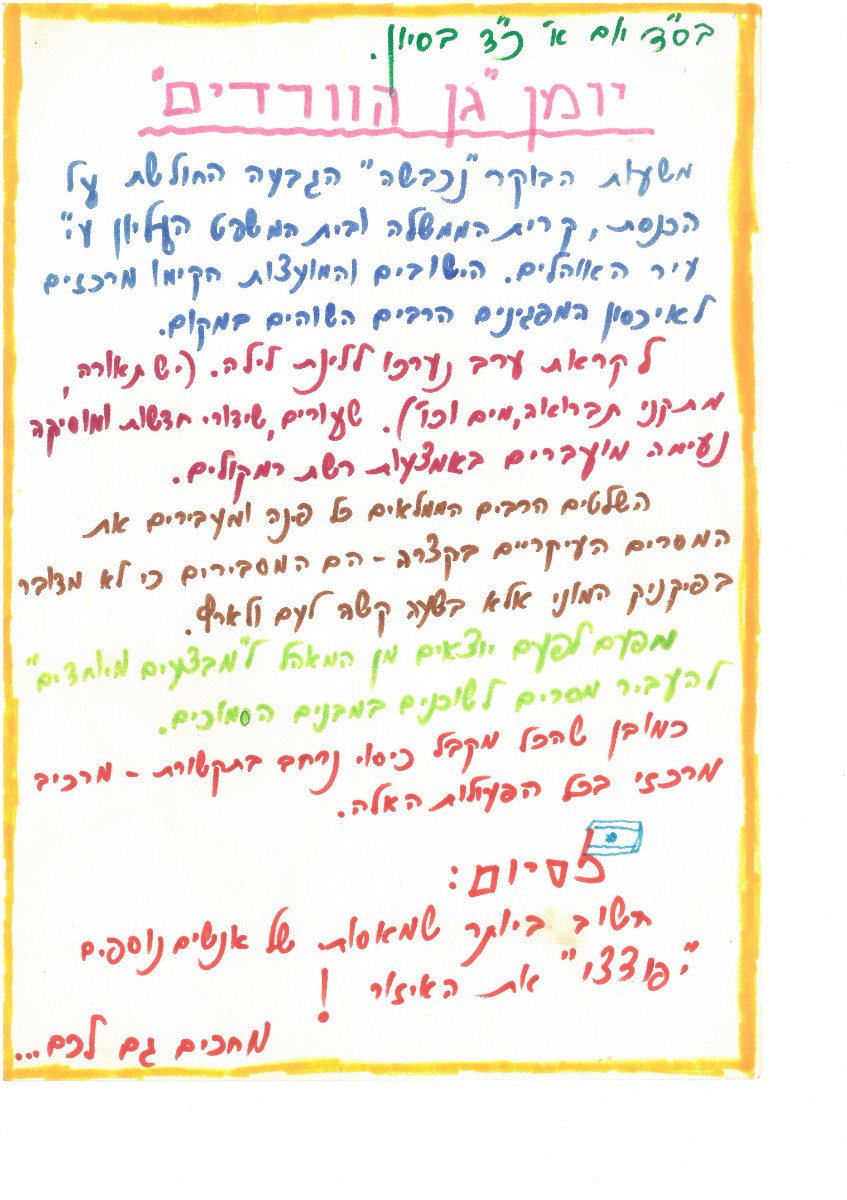 בס"ד יום א' כ"ד בסיון.
יומן "גן הוורדים"
משעות הבוקר "נכבשה" הגבעה החולשת על
הכנסת, קרית הממשלה ובית המשפט העליון ע"י
עיר האוהלים. הישובים והמועצות הקימו מרכזים
לאיכסון המפגינים הרבים השוהים במקום.
לקראת ערב נערכו ללינת לילה. (יש תאורה,
מתקני תברואה, מים וכו'). שעורים, שידורי חדשות ומוסיקה
נעימה מועברים באמצעות רשת רמקולים.
השלטים הרבים הממלאים כל פינה ומעבירים את
המסרים העיקריים בקצרה - הם המסבירים כי לא מדובר
בפיקניק המוני אלא בשעה קשה לעם ולארץ.
מפעם לפעם יוצאים מן המאהל ל"מבצעים מיוחדים"
להעביר מסרים לשוכנים במבנים הסמוכים.
כמובן שהכל מקבל כיסוי נרחב בתקשורת - מרכיב
מרכזי בכל הפעולות האלה.
לסיום:
חשוב ביותר שמאסות של אנשים נוספים
"יפוצצו" את האיזור !
מחכים גם לכם...